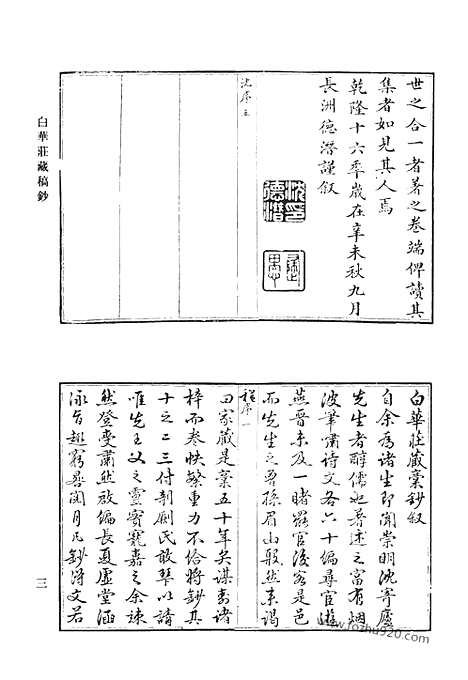 世之合一者著之卷端俾讀其
集者如見其人焉
乾隆十六年歲在辛未秋九月
長洲德潛謹叙
沈序五
沈印德潛
白華莊藏稿鈔
白華莊藏稾鈔叙
自余爲諸生即聞崇明沈寄廬
先生者醇儒也著述之富有烟
波筆嘯詩文各六十編尋官遊
燕晋未及一睹罷官後客是邑
而先生之曾孫眉山般然來謁
程序一
田家藏是稾五十年矣謀壽諸
梓而卷帙繁重力不給將鈔其
十之二三付剞劂氏敢舉以請
唯先王父之靈實寵嘉之余竦
然登受肅然啟編長夏虛堂涵
泳旨趣窮晷閱月凡鈔得文若
三
www.fozhu920.com